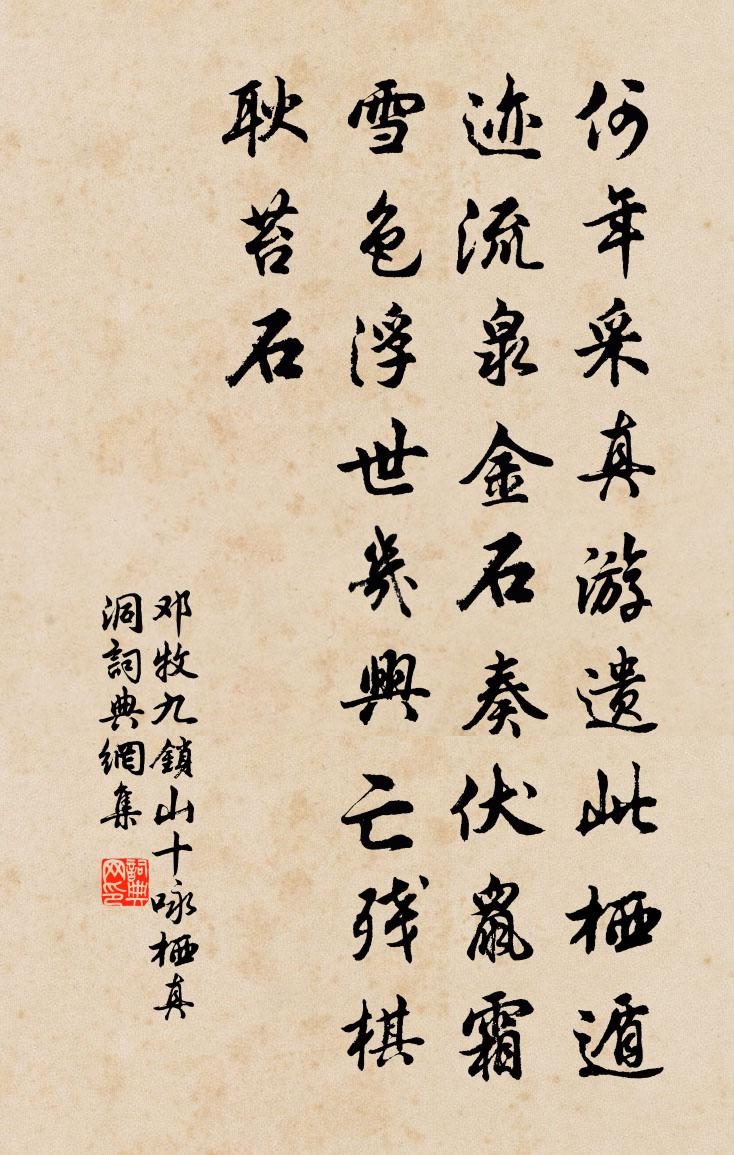 何年采真游遗此栖遁
迹流泉金石奏伏鼠霜
雪色浮世几興亡残棋
耿苔石
邓牧九鎖山十咏栖真
洞詞典網集
詞典网印